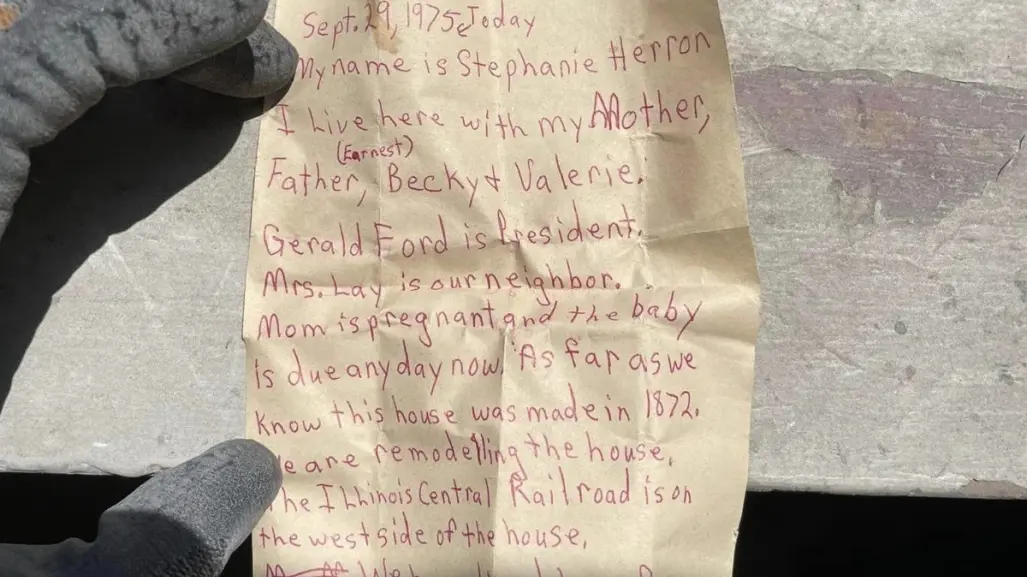 Sept. 29, 1975. Today
My name is Stephanie Herron
I Live here with my Mother,
(Earnest)
Father, Becky & Valerie.
Gerald Ford is President.
Mrs. Lay is our neighbor.
Mom is pregnant and the baby
is due any day now. As far as we
know this house was made in 1872.
We are remodelling the house.
The Illinois Central Railroad is on
the west side of the house.